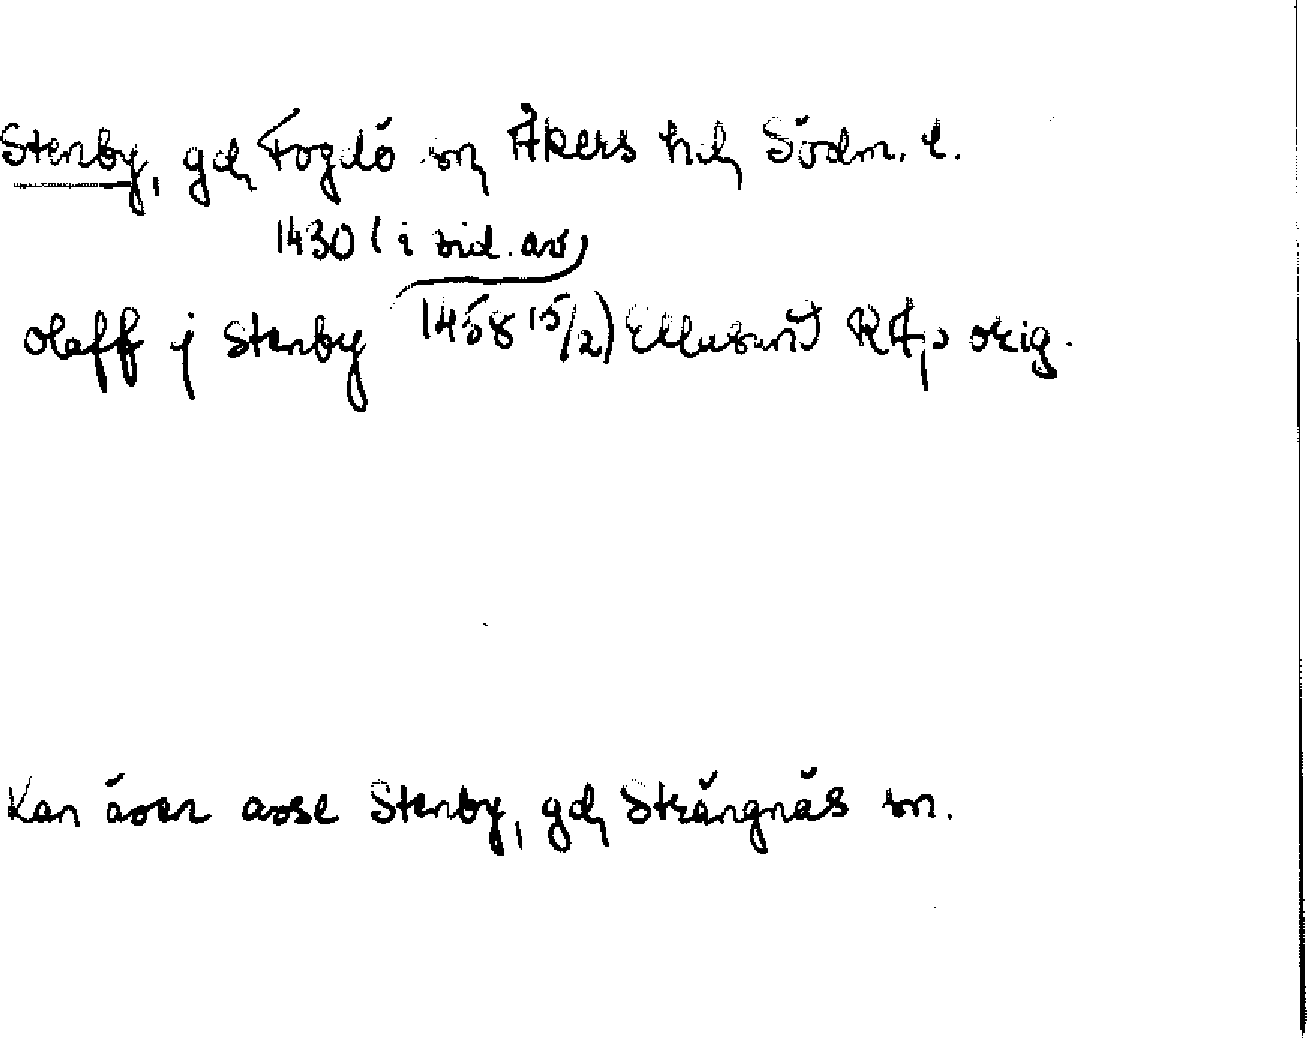 Stenby, gd, Fogdö sn, Åkers hd, Södm. l.
1430 (i vid. av
Olaff j Stenby 1458 15/2) Ellusund RA, p orig.
Kan även avse Stenby, gd, Strängnäs sn.